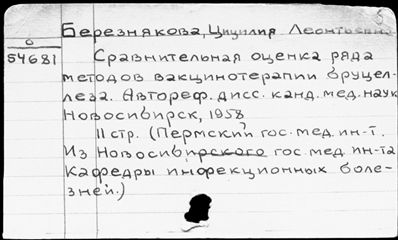 5
Березнякова, Цицилия Леонтьевна
О
54681
Сравнительная оценка ряда
методов вакцинотерапии бруцел-
леза. Автореф. дисс. канд. мед. наук
Новосибирск, 1958
11 стр. (Пермский гос. мед. ин-т.
Из Новосибирского гос. мед. ин-та
Кафедры инфекционных боле-
зней.)